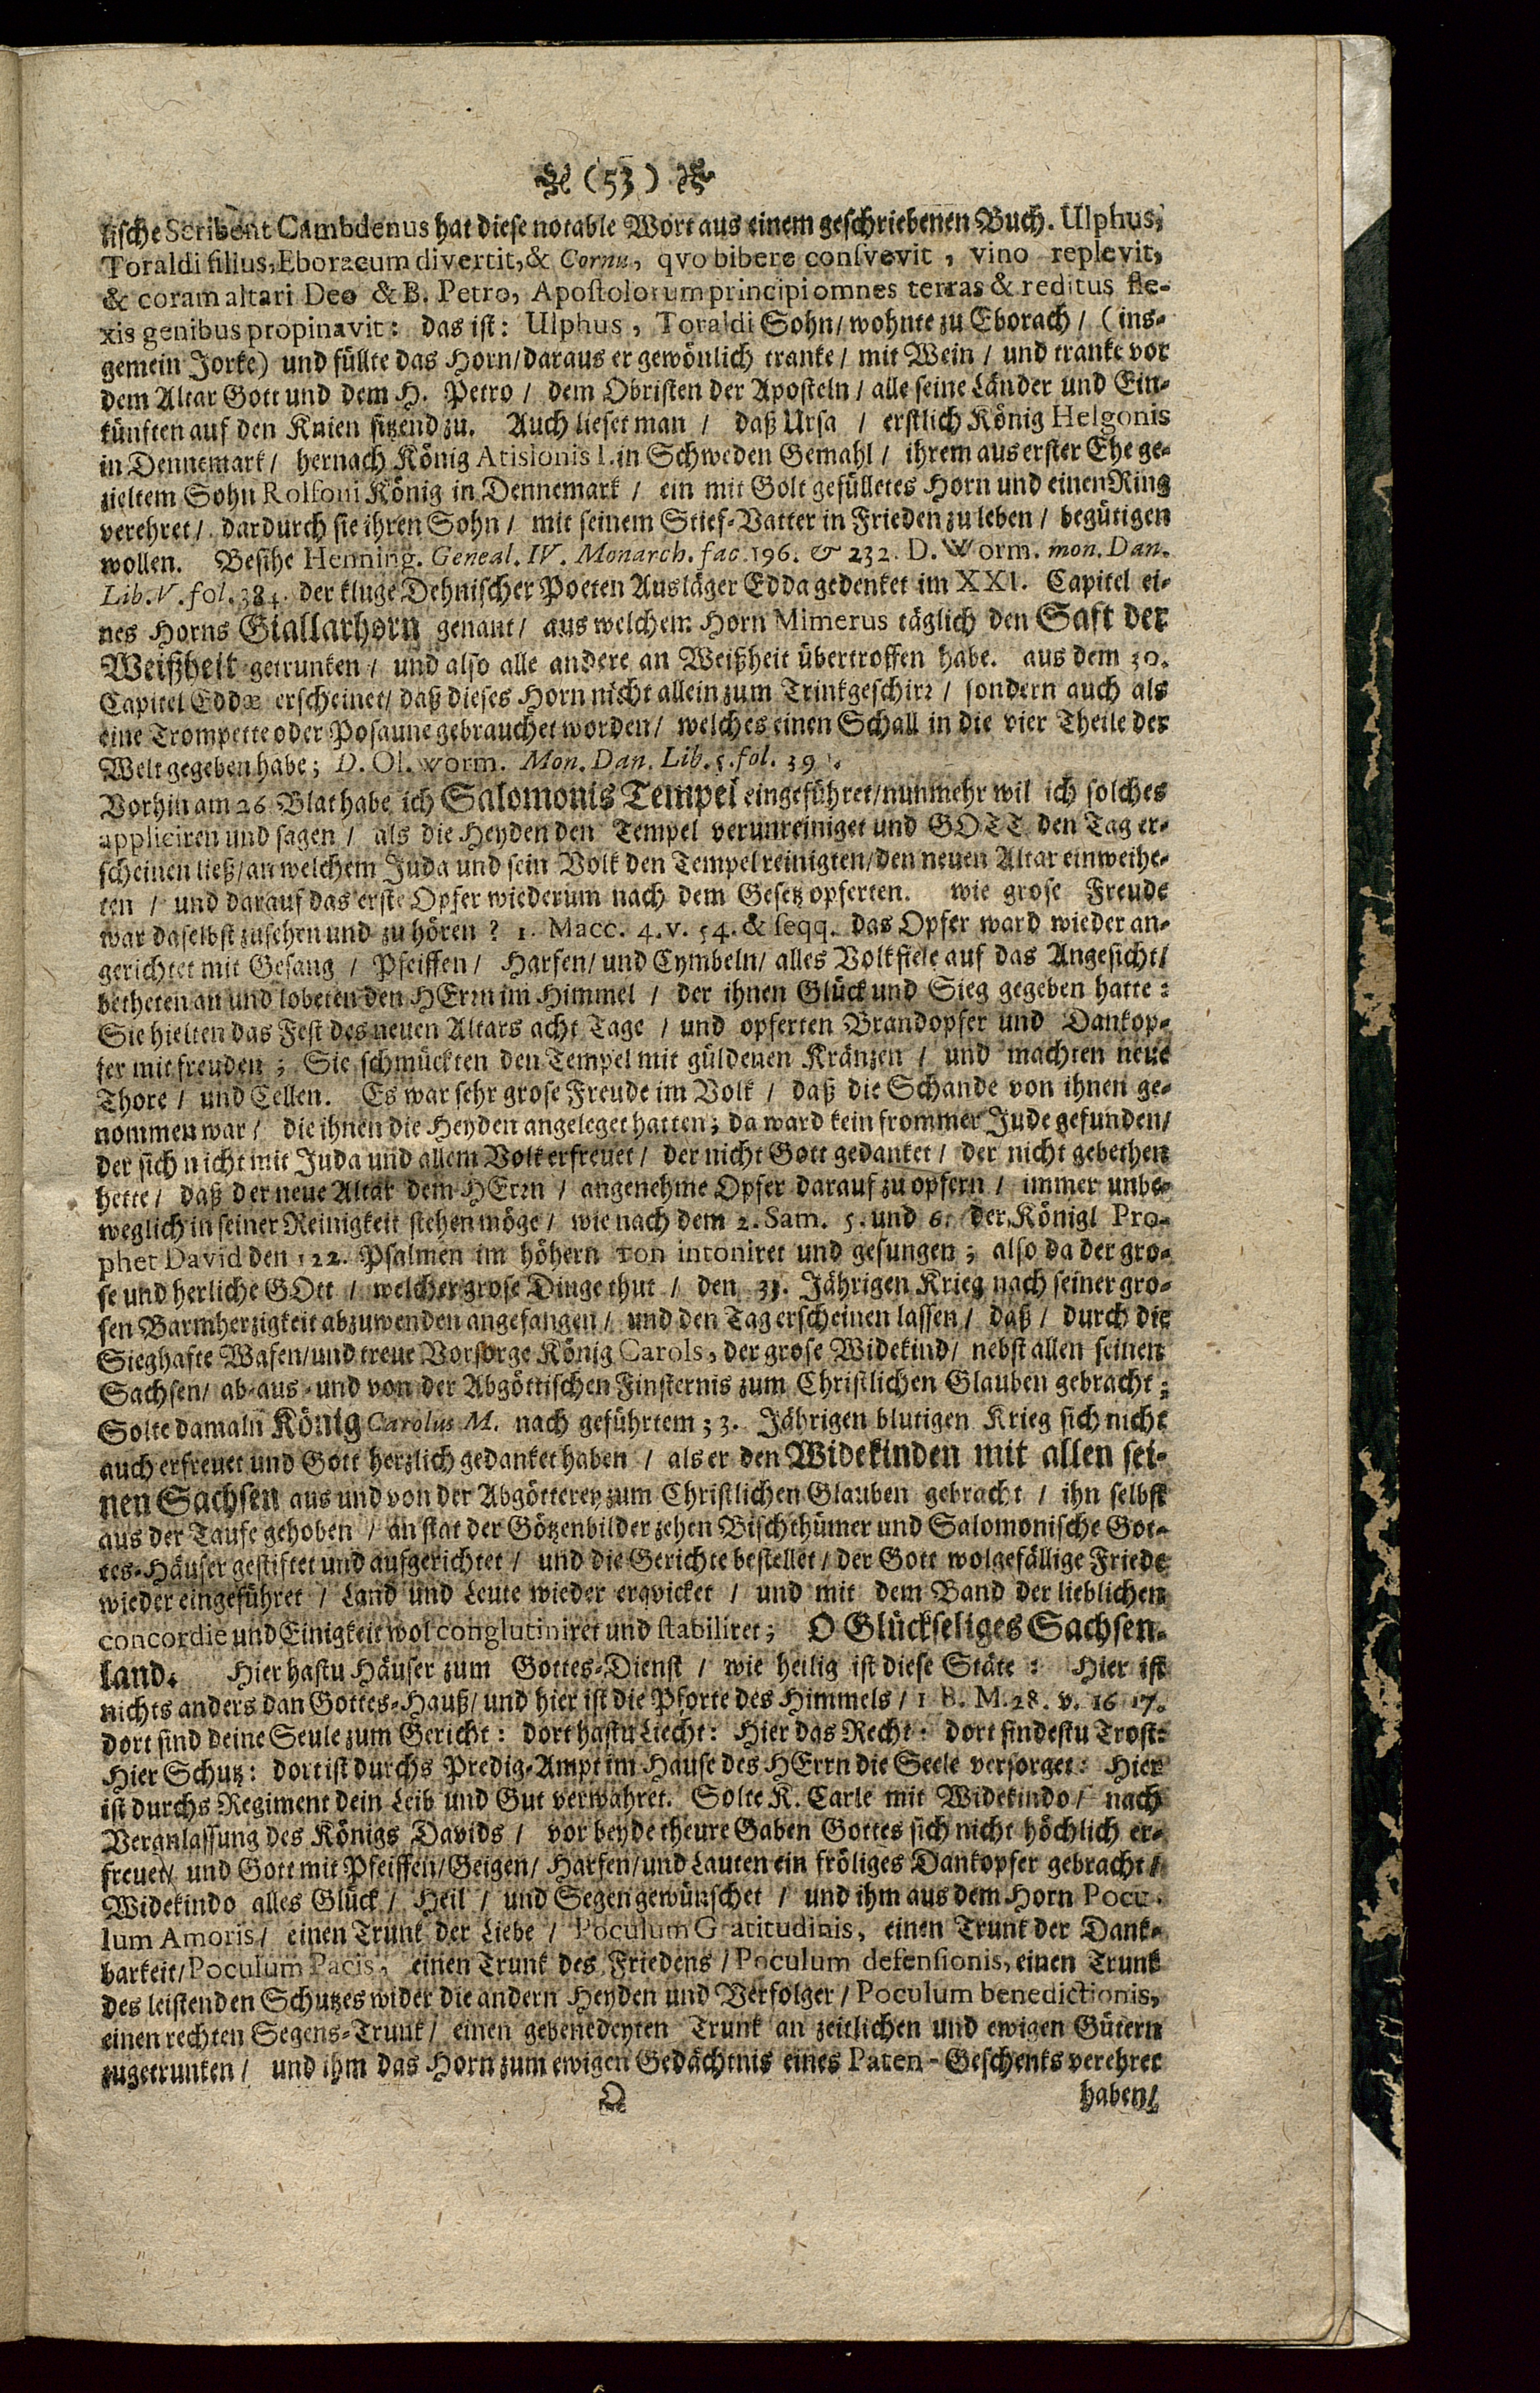 (53)
lische Scribent Cambdenus hat diese notable Wort aus einem geschriebenen Buch. Ulphus,
Toraldi filius, Eboracum divertit, & Cornu, qvo bibere consvevit, vino replevit,
& coram altari Deo & B. Petro, Apostolorum principi omnes terras & reditus fle-
xis genibus propinavit: das ist: Ulphus, Toraldi Sohn/ wohnte zu Eborach/ (ins-
gemein Jorke) und füllte das Horn/ daraus er gewönlich tranke/ mit Wein/ und tranke vor
dem Altar Gott und dem H. Petro/ dem Obristen der Aposteln/ alle seine Länder und Ein-
künften auf den Knien sitzend zu. Auch lieset man/ daß Ursa/ erstlich König Helgonis
in Dennemark/ hernach König Atislonis I. in Schweden Gemahl/ ihrem aus erster Ehe ge-
zieltem Sohn Rolfoni König in Dennemark/ ein mit Golt gefülletes Horn und einen Ring
verehret/ dardurch sie ihren Sohn/ mit seinem Stief-Vatter in Frieden zu leben/ begütigen
wollen. Besihe Henning. Geneal. IV. Monarch. fac. 196. & 232. D. Worm. mon. Dan.
Lib. V. fol. 384. der kluge Dehnischer Poeten Ausläger Edda gedenket im XXI. Capitel ei-
nes Horns Giallarhorn genant/ aus welchem Horn Mimerus täglich den Saft der
Weißheit getrunken/ und also alle andere an Weißheit übertroffen habe. aus dem 30.
Capitel Eddæ erscheinet/ daß dieses Horn nicht allein zum Trinkgeschirr/ sondern auch als
eine Trompette oder Posaune gebrauchet worden/ welches einen Schall in die vier Theile der
Welt gegeben habe; D. Ol. worm. Mon. Dan. Lib. 5. fol.
Vorhin am 26 Blat habe ich Salomonis Tempel eingeführet/ nunmehr wil ich solches
appliciren und sagen/ als die Heyden den Tempel verunreiniget und GOTT den Tag er-
scheinen ließ/ an welchem Juda und sein Volk den Tempel reinigten/ den neuen Altar einweihe-
ten/ und darauf das erste Opfer wiederum nach dem Gesetz opferten. wie grose Freude
war daselbst zusehen und zu hören? 1. Macc. 4. v. 54. & seqq. das Opfer ward wieder an-
gerichtet mit Gesang/ Pfeiffen/ Harfen/ und Cymbeln/ alles Volk fiele auf das Angesicht/
betheten an und lobeten den HErrn im Himmel/ der ihnen Glück und Sieg gegeben hatte:
Sie hielten das Fest des neuen Altars acht Tage/ und opferten Brandopfer und Dankop-
fer mit freuden; Sie schmückten den Tempel mit güldenen Kränzen/ und machten neue
Thore/ und Cellen. Es war sehr grose Freude im Volk/ daß die Schande von ihnen ge-
nommen war/ die ihnen die Heyden angeleget hatten; da ward kein frommer Jude gefunden/
der sich nicht mit Juda und allem Volk erfreuet/ der nicht Gott gedanket/ der nicht gebethen
hette/ daß der neue Altar dem HErrn/ angenehme Opfer darauf zu opfern/ immer unbe-
weglich in seiner Reinigkeit stehen möge/ wie nach dem 2. Sam. 5. und 6. der Königl Pro-
phet David den 122. Psalmen im höhern ton intoniret und gesungen; also da der gro-
se und herliche GOtt/ welcher grose Dinge thut/ den 33. Jährigen Krieg nach seiner gro-
sen Barmherzigkeit abzuwenden angefangen/ und den Tag erscheinen lassen/ daß/ durch die
Sieghafte Wafen/ und treue Vorsorge König Carols, der grose Widekind/ nebst allen seinen
Sachsen/ ab-aus-und von der Abgöttischen Finsternis zum Christlichen Glauben gebracht;
Solte damaln König Carolus M. nach geführtem 33. Jährigen blutigen Krieg sich nicht
auch erfreuet und Gott herzlich gedanket haben/ als er den Widekinden mit allen sei-
nen Sachsen aus und von der Abgötterey zum Christlichen Glauben gebracht/ ihn selbst
aus der Taufe gehoben/ an stat der Götzenbilder zehen Bischthümer und Salomonische Got-
tes-Häuser gestiftet und aufgerichtet/ und die Gerichte bestellet/ der Gott wolgefällige Friede
wieder eingeführet/ Land und Leute wieder erqvicket/ und mit dem Band der lieblichen
concordie und Einigkeit wol conglutiniret und stabiliret; O Glückseliges Sachsen-
land. Hier hastu Häuser zum Gottes-Dienst/ wie heilig ist diese Stäte: Hier ist
nichts anders dan Gottes-Hauß/ und hier ist die Pforte des Himmels/ 1 B. M. 28. v. 16 17.
dort sind deine Seule zum Gericht: dort hastu Liecht: Hier das Recht: dort findestu Trost:
Hier Schutz: dort ist durchs Predig-Ampt im Hause des HErrn die Seele versorget: Hier
ist durchs Regiment dein Leib und Gut verwahret. Solte K. Carle mit Widekindo/ nach
Veranlassung des Königs Davids/ vor beyde theure Gaben Gottes sich nicht höchlich er-
freuet/ und Gott mit Pfeiffen/ Geigen/ Harfen/ und Lauten ein fröliges Dankopfer gebracht/
Widekindo alles Glück/ Heil/ und Segen gewünschet/ und ihm aus dem Horn Pocu-
lum Amoris/ einen Trunk der Liebe/ Poculum Gratitudinis, einen Trunk der Dank-
barkeit/ Poculum Pacis, einen Trunk des Friedens/ Poculum defensionis, einen Trunk
des leistenden Schutzes wider die andern Heyden und Verfolger/ Poculum benedictionis,
einen rechten Segens-Trunk/ einen gebenedeyten Trunk an zeitlichen und ewigen Gütern
zugetrunken/ und ihm das Horn zum ewigen Gedächtnis eines Paten-Geschenks verehret
haben/